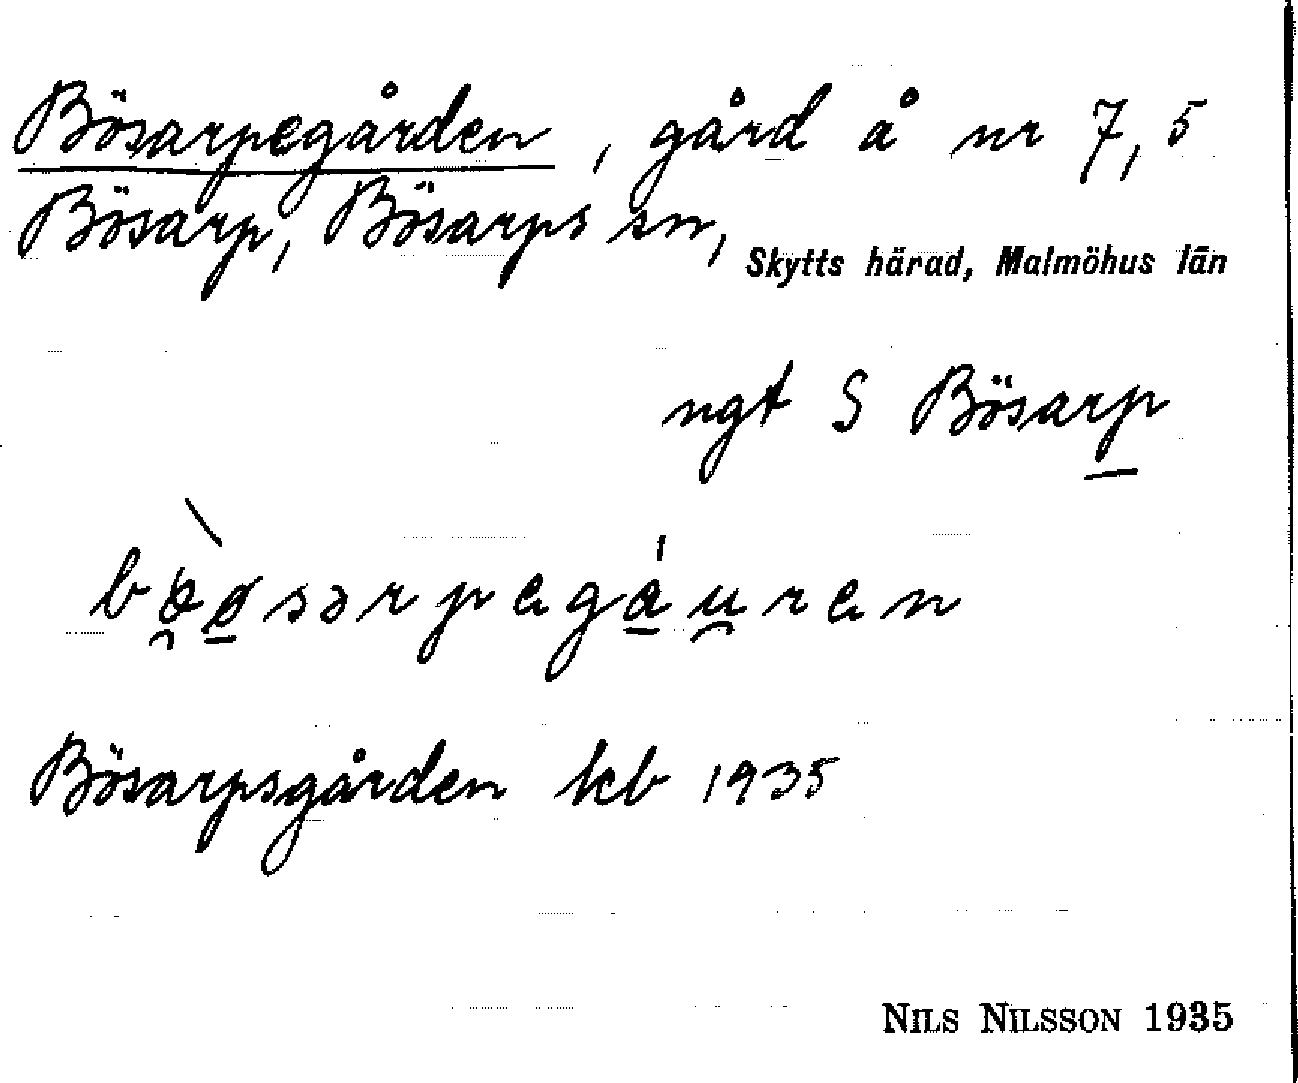 Bösarpegården, gård å nr 7, 5
Bösarp, Bösarps sn, Skytts härad, Malmöhus län
ngt S Bösarp
Bösarpsgården kb 1935
NILS NILSSON 1935